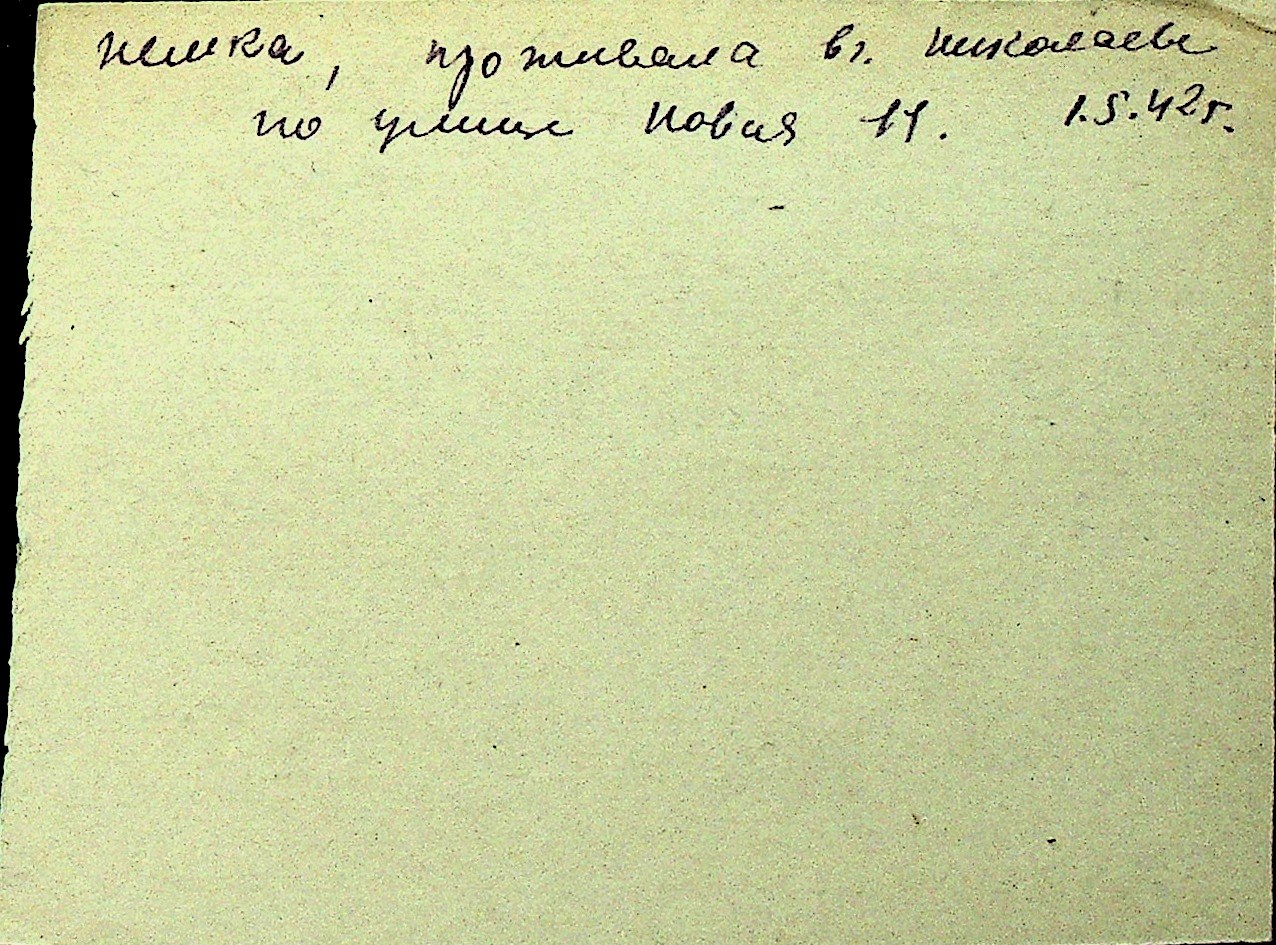 немка, проживала в г. Николаеве
по улице Новая 11. 1.5.42г.